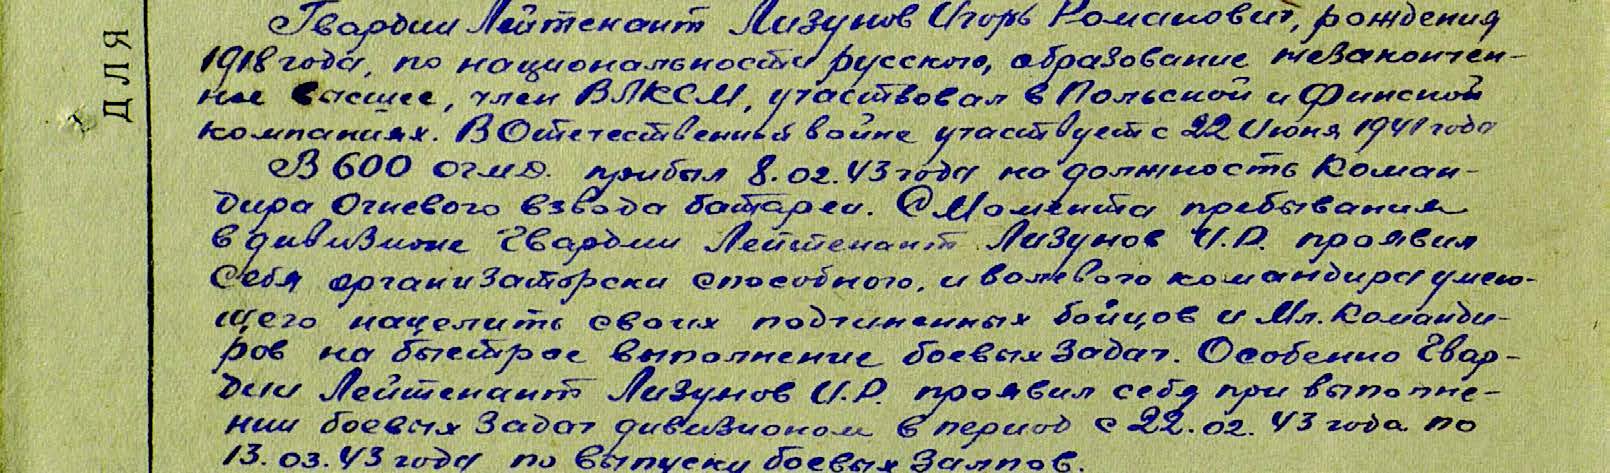 ДЛЯ
Гвардии Лейтенант Лизунов Игорь Романович, рождения
1918 года, по национальности русского, образование незакончен-
ное высшее, член ВЛКСМ, участвовал в Польской и Финской
компаниях. В Отечественной войне участвует с 22 Июня 1941 года
В 600 огмд. прибыл 8.02.43 года на должность Коман-
дира Огневого взвода батареи. С Момента пребывания
в дивизионе Гвардии Лейтенант Лизунов И.Р. проявил
Себя организаторски способного, и волевого командира умею-
щего нацелить своих подчиненных бойцов и Мл. Команди-
ров на быстрое выполнение боевых Задач. Особенно Гвар-
дии Лейтенант Лизунов И.Р. проявил себя при выполне-
нии боевых Задач дивизионом в период с 22.02.43 года по
13.03.43 года по выпуску боевых Залпов.